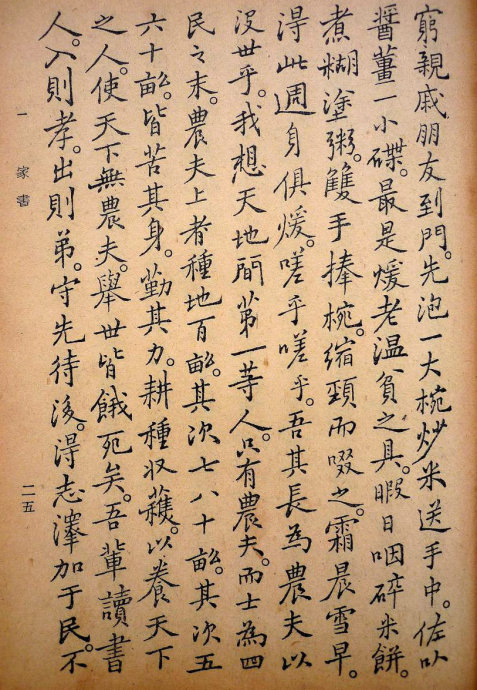 窮親戚朋友到門。先泡一大椀炒米送手中。佐以
醬薑一小碟。最是煖老温貧之具。暇日咽碎米餅。
煮糊塗粥。雙手捧椀。縮頸而啜之。霜晨雪早。
得此週身俱煖。嗟乎嗟乎。吾其長為農夫以
没世乎。我想天地間第一等人。只有農夫。而士為四
民之末。農夫上者種地百畝。其次七八十畝。其次五
六十畝。皆苦其身。勤其力。耕種收穫。以養天下
之人。使天下無農夫。舉世皆餓死矣。吾輩讀書
人。入則孝。出則弟。守先待後。得志澤加于民。不
一 家書 二五